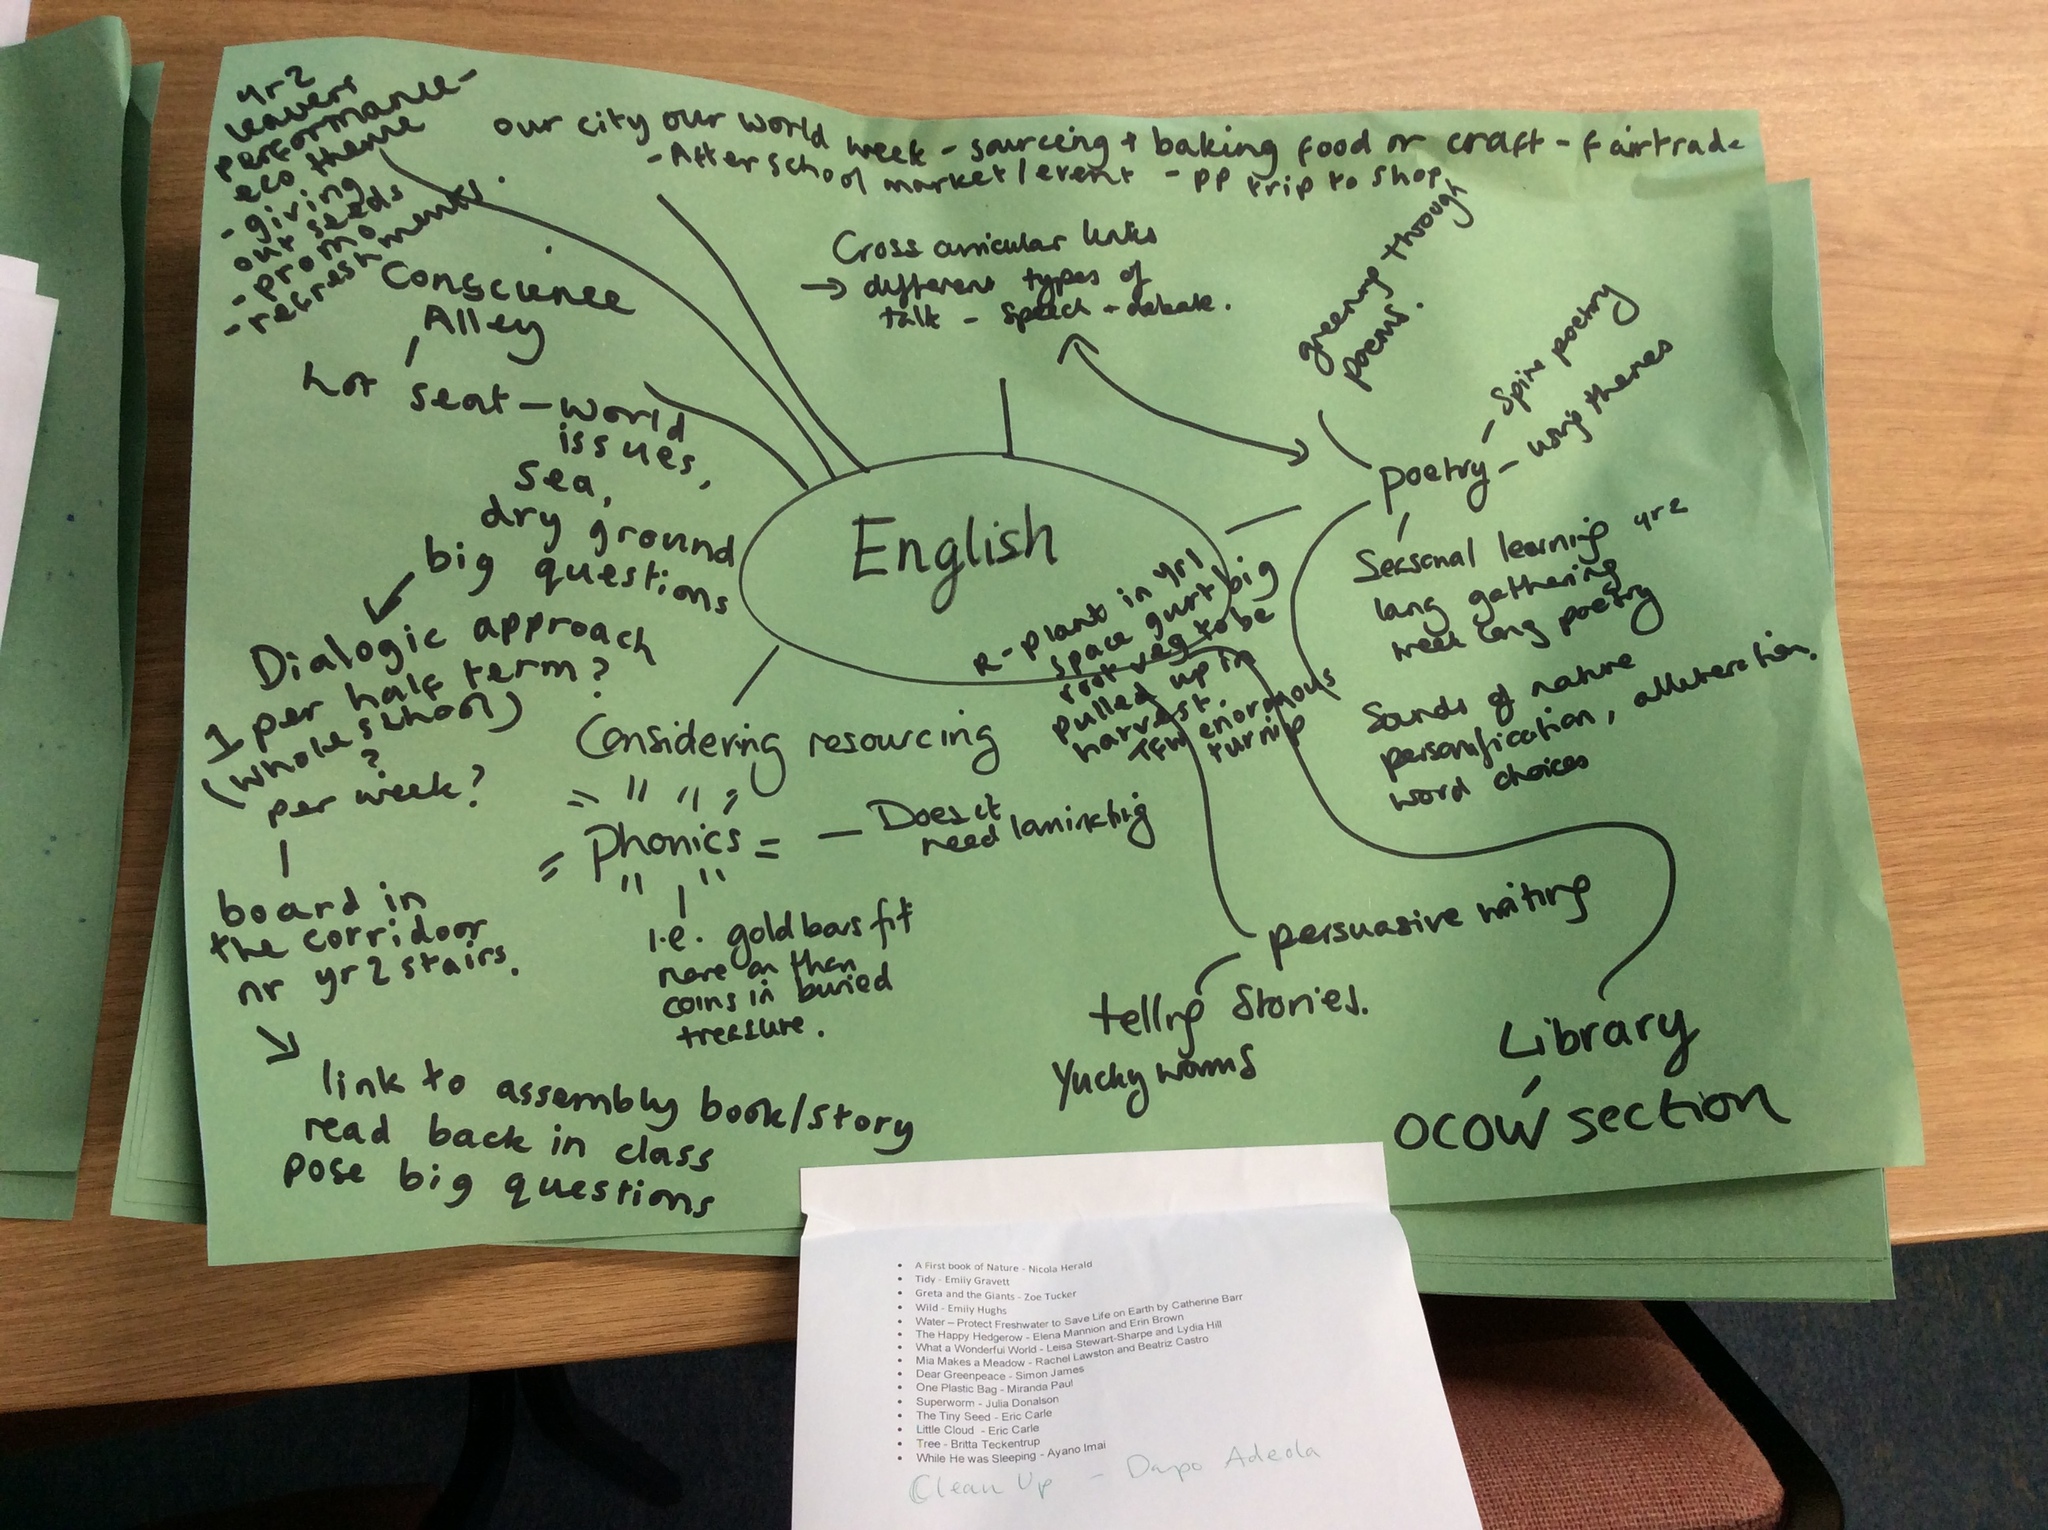 yr2
leavers
performance -
eco theme
- giving
out seeds
- promo
- refreshments.
our city our world week - sourcing + baking food or craft - fairtrade
- After school market/event - pp trip to shop
Cross curricular links
→ different types of
talk - speech + debate.
greening through
poems.
Poetry
- Spine poetry
- using themes
Seasonal learning yr2
lang gathering
week long poetry
Sounds of nature
personification, alliteration,
word choices
Conscience
Alley
hot seat - world
issues,
sea,
dry ground
big questions
Dialogic approach
1 per half term?
(whole school)
?
per week?
board in
the corridor
nr yr 2 stairs.
link to assembly book/story
read back in class
pose big questions
English
R - plant in yr1
space gurt big
root veg to be
pulled up in
harvest.
T4W enormous
turnip
Considering resourcing
Phonics
- Does it
need laminating
i.e. gold bars fit
more on than
coins in buried
treasure.
persuasive writing
telling stories.
Yucky worms
Library
OCOW section
• A First book of Nature - Nicola Herald
• Tidy - Emily Gravett
• Greta and the Giants - Zoe Tucker
• Wild - Emily Hughs
• Water – Protect Freshwater to Save Life on Earth by Catherine Barr
• The Happy Hedgerow - Elena Mannion and Erin Brown
• What a Wonderful World - Leisa Stewart-Sharpe and Lydia Hill
• Mia Makes a Meadow - Rachel Lawston and Beatriz Castro
• Dear Greenpeace - Simon James
• One Plastic Bag - Miranda Paul
• Superworm - Julia Donalson
• The Tiny Seed - Eric Carle
• Little Cloud - Eric Carle
• Tree - Britta Teckentrup
• While He was Sleeping - Ayano Imai
Clean Up - Dapo Adeola